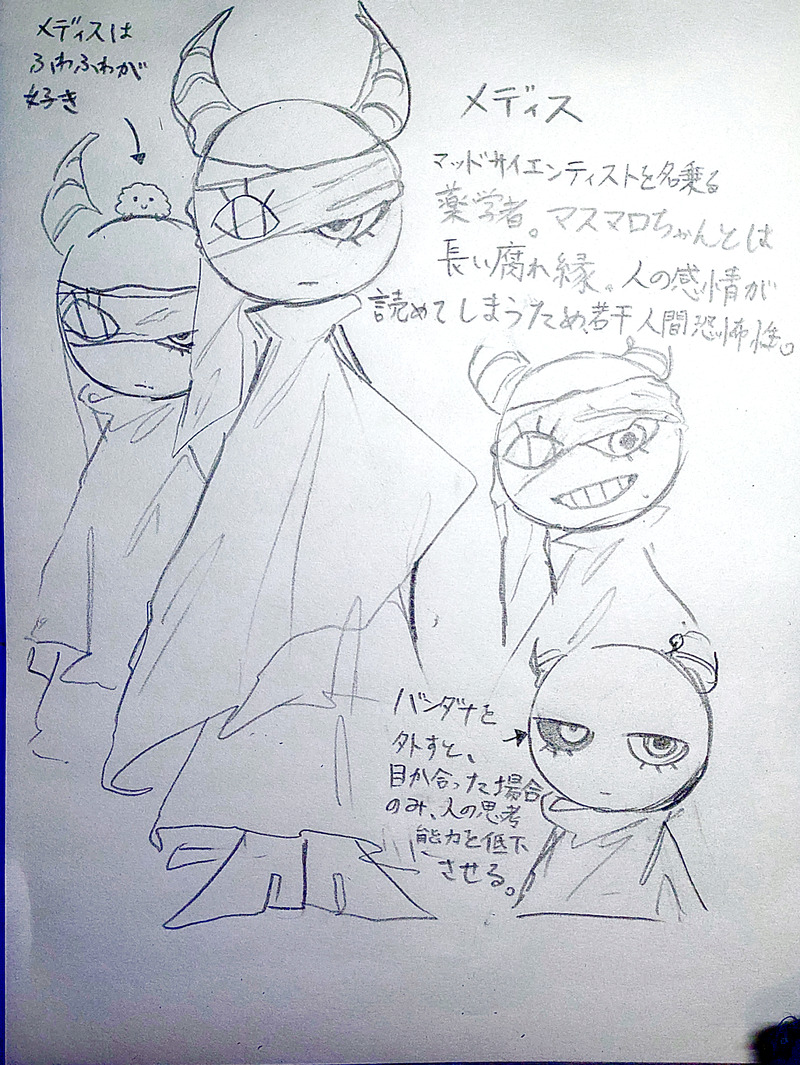 メディスは
ふわふわが
好き
メディス
マッドサイエンティストを名乗る
薬学者。マスマロちゃんとは
長い腐れ縁。人の感情が
読めてしまうため、若干人間恐怖症。
バンダナを
外すと、
目が合った場合
のみ、人の思考
能力を低下
させる。